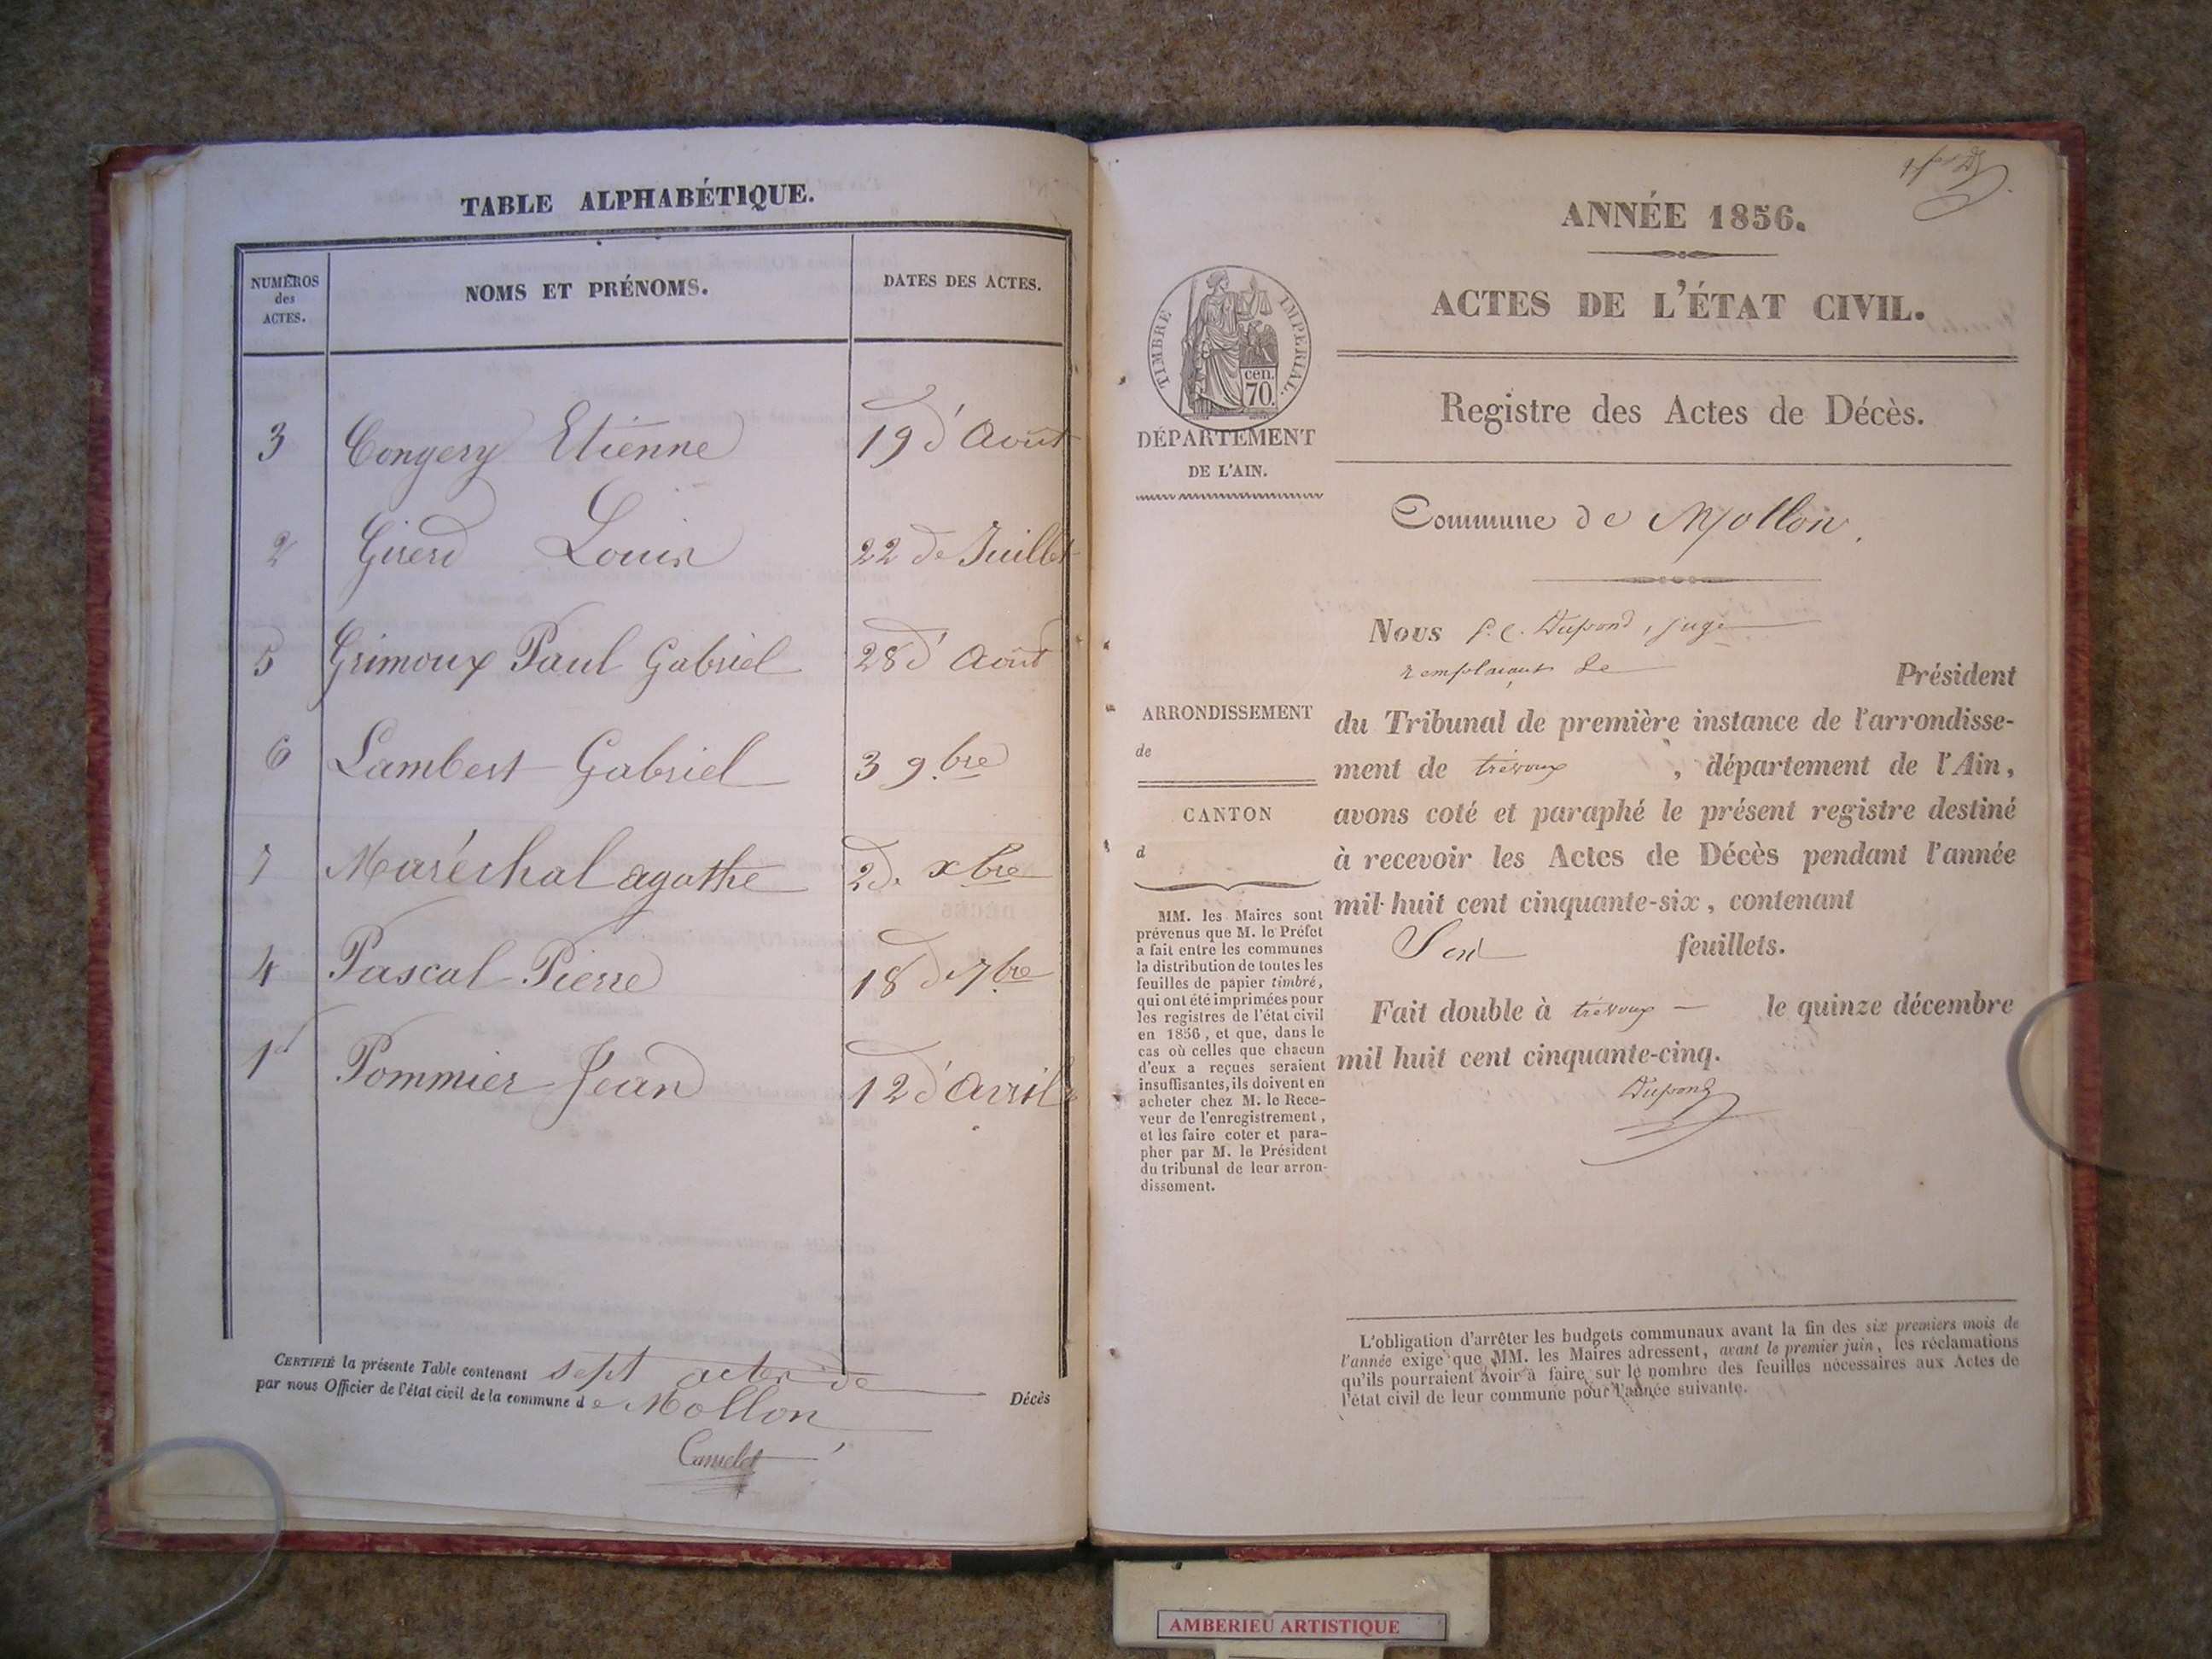 TABLE ALPHABÉTIQUE.
NUMÉROS des ACTES. NOMS ET PRÉNOMS. DATES DES ACTES.
3 Congery Etienne 19 d'Août
2 Girerd Louis 22 de Juillet
5 Grimoux Paul Gabriel 28 d'Août
6 Lambert Gabriel 3 9.bre
7 Maréchal agathe 2 de xbre
4 Pascal Pierre 18 de 7bre
1er Pommier Jean 12 d'avril
CERTIFIÉ la présente Table contenant sept actes de Décès
par nous Officier de l'état civil de la commune de Mollon
ANNÉE 1856.
ACTES DE L'ÉTAT CIVIL.
Registre des Actes de Décès.
TIMBRE IMPERIAL.
70. cen.
DÉPARTEMENT
DE L'AIN.
Commune de Mollon.
Nous Dupond, juge
remplaçant le Président
du Tribunal de première instance de l'arrondisse-
ment de trévoux, département de l'Ain,
avons coté et paraphé le présent registre destiné
à recevoir les Actes de Décès pendant l'année
mil huit cent cinquante-six, contenant
feuillets.
Fait double à trévoux — le quinze décembre
mil huit cent cinquante-cinq.
Dupond
ARRONDISSEMENT
de
CANTON
d
MM. les Maires sont
prévenus que M. le Préfet
a fait entre les communes
la distribution de toutes les
feuilles de papier timbré,
qui ont été imprimées pour
les registres de l'état civil
en 1856, et que, dans le
cas où celles que chacun
d'eux a reçues seraient
insuffisantes, ils doivent en
acheter chez M. le Rece-
veur de l'enregistrement,
et les faire coter et para-
pher par M. le Président
du tribunal de leur arron-
dissement.
L'obligation d'arrêter les budgets communaux avant la fin des six premiers mois de
l'année exige que MM. les Maires adressent, avant le premier juin, les réclamations
qu'ils pourraient avoir à faire sur le nombre des feuilles nécessaires aux Actes de
l'état civil de leur commune pour l'année suivante.
AMBERIEU ARTISTIQUE